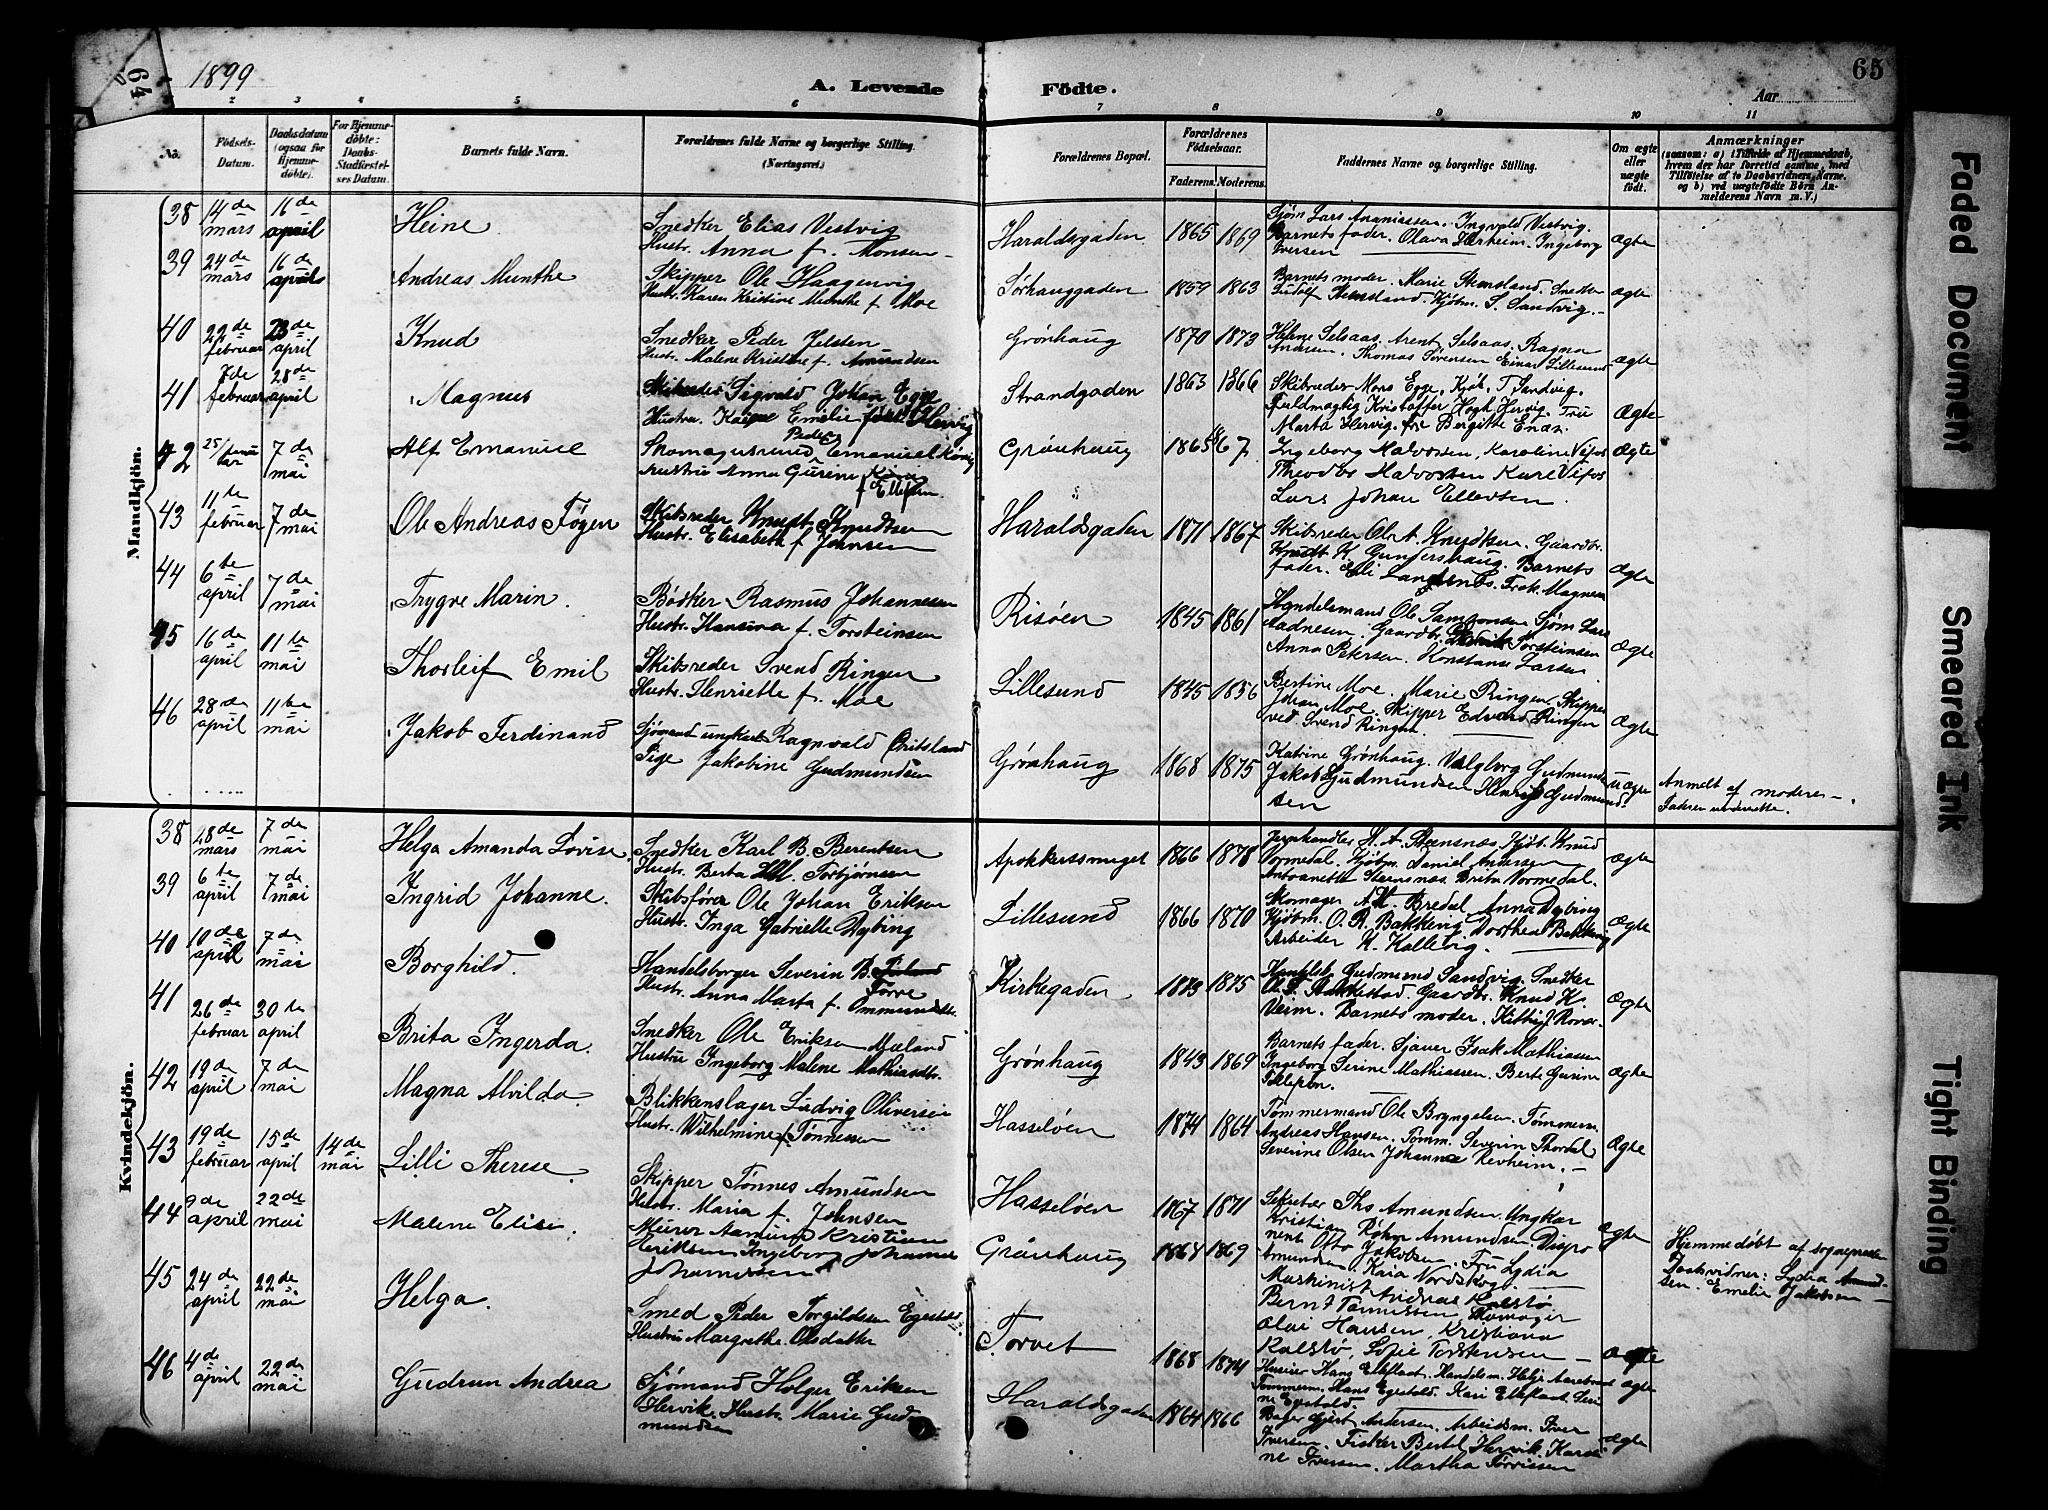 64
1899
A. Levende Födte.
Aar
65
2 3 4 5 6 7 8 9 10 11
No. Födsels-Datum. Daabsdatum (ogsaa för Hjemme-döbte). For Hjemme-döbte: Daabs-Stadfæstel-ses Datum. Barnets fulde Navn. Forældrenes fulde Navne og borgerlige Stilling. (Næringsvei.) Forældrenes Bopæl. Forældrenes Födselsaar. Faderens. Moderens. Faddernes Navne og borgerlige Stilling. Om ægte eller uægte födt. Anmærkninger (saasom: a) i Tilfælde af Hjemmedaab, hvem der har forrettet samme, med Tilföielse af to Daabsvidners Navne. og b) ved uægtefödte Börn An-melderens Navn m. V.)
Mandkjön.
38 14de mars 16de april Heine Snedker Elias Vestvig Hustr. Anna f. Monsen Haraldsgaden 1865 1869 Sjøm. Lars Ananiassen. Ingvald Vestvig. Barnets fader. Olava Ingeborg Iversen ægte
39 24de mars 16de april Andreas Munthe Skipper Ole Haagenvig Hustr. Karen Kristine Munthe f. Moe Sørhauggaden 1859 1863 Barnets moder. Marie Stensland. Snedker Stensland. Kjøbm. S. Sandvig. ægte
40 22de februar 23de april Knud Snedker Peder Jelsten Hustr. Malene Kristine f. Amundsen Grønhaug 1870 1873 Helene Selsaas. Arent Selsaas. Ragna Thomas Sørensen Einar Lillesund ægte
41 7de februar 28de april Magnus Skibsreder Sigvald Johan Egge Hustru. Emelie født Hervig Strandgaden 1863 1866 Skibsreder Mons Egge, Kjøb. T. Sandvig. Fuldmægtig Kristoffer Hervig. Fru Marta Hervig. Bergitte ægte
42 25/ 7de mai Alf Emanuel Peder Emanuel Hustru Anna Gurine f. Ellefsen Grønhaug 1865 67 Ingeborg Halvorsen, Karoline Theodor Halvorsen Karl Lars Johan Ellevsen ægte
43 11te februar 7de mai Ole Andreas Tøgen Skibsreder Knudt Knudtsen Hustr. Elisabeth f. Johnsen Haraldsgaden 1871 1867 Skibsreder Ole A. Knudtsen. Gaardbr. Knudt K. Gundershaug. Barnets fader. Frøk. Magnesen ægte
44 6te april 7de mai Trygve Marin Bødker Rasmus Johannesen Hustr. Hansina f. Torsteinsen Risøen 1845 1861 Handelsmand Ole Samsonsen Sjøm. Lars Aadnesen. Gaardbr. Torsteinsen Anna Petersen. Konstanse Larsen ægte
45 16de april 11te mai Thorleif Emil Skibsreder Svend Ringen Hustr. Henriette f. Moe Lillesund 1845 1856 Bertine Moe. Marie Ringen. Skipper Johan Moe. Skipper Edvard Ringen ved Svend Ringen ægte
46 28de april 11te mai Jakob Ferdinand Sjømand ungkarl Ragnvald Pige Jakobine Gudmundsen Grønhaug 1868 1875 Katrine Grønhaug. Valgborg Gudmundsen Jakob Gudmundsen Henrik Gudmundsen uægte Anmeldt af moderen
Kvindekjön.
38 28de mars 7de mai Helga Amanda Lovise Snedker Karl B. Berentsen Hustr. Berta M. Torbjørnsen Apothekersmuget 1866 1878 Jernhandler M. A. Steensnæs, Kjøb. Knud Vormedal. Kjøbm. Daniel Andersen Antoanette Steensnæs. Brita Vormedal. ægte
39 6te april 7de mai Ingrid Johanne. Skibsfører Ole Johan Eriksen Hustr. Inga Gabrielle Dybing Lillesund 1866 1870 Skomager Bredal Anna Dybing Kjøbm. O. R. Bakkevig Dorthea Bakkevig Arbeider K. Hallevig. ægte
40 10de april 7de mai Borghild. Handelsborger Severin B. Førre Hustr. Anna Marta f. Ommundsdtr. Kirkegaden 1873 1875 Handelsb. Gudmund Sandvig. Snedker Stakkestad. Gaardbr. Knud K. Veim. Barnets moder. Røvær. ægte
41 26de februar 30te april Brita Ingerda. Snedker Ole Eriksen Mæland Hustru Ingeborg Malene Mathiasdtr. Grønhaug 1843 1869 Barnets fader. Sjauer Isak Mathiassen Ingeborg Serine Mathiassen. Berte Gurine ægte
42 19de april 7de mai Magna Alvilda. Blikkenslager Ludvig Oliversen Hustr. Wilhelmine f. Tønnessen Hasseløen 1874 1864 Tømmermand Ole Bryngelsen. Tømmerm. Andreas Hansen. Tømm. Severin Thordal Severine Olsen Johanna Revheim. ægte
43 19de februar 15de april 14de mai Lilli Therese Skipper Tønnes Amundsen Hustr. Maria f. Johnsen Hasseløen 1867 1871 Sekretær Ths Amundsen. Ungkar Kristian Amundsen. Dispo nent Otto Jakobsen. Fru Lydia Amundsen. Kaia Nordskog. ægte Hjemmedøbt af sognepresten Daabsvidner: Lydia Amund-sen. Emelie Jakobsen
44 9de april 22de mai Malene Elise. Murer Kristian Eriksen Ingeborg Johanne Johannessen Grønhaug 1864 1869 Maskinist Andreas Kalstø Bernt Tønnessen, Skomager Olai Hansen, Kristiana Kalstø, Sofie Torstensen ægte
45 24de april 22de mai Helga. Smed Peder Torgildsen Egestad Hustru Margrethe Olsdatter Torvet 1868 1874 Hans Elleflaat. Handelsm. Helje Aarebrot Tømmerm. Hans Egestad. Kari Elleflaat. Seri ne Egestad. ægte
46 4de april 22de mai Gudrun Andrea Sjømand Holger Eriksen Hervik. Hustr. Marie Gud mundsen Haraldsgaden 1864 1866 Bager Gjert Andersen. Arbeidsm. Iver Iversen. Fisker Bertel Hervik. Karoli ne Iversen. Martha Tørriesen ægte
Faded Document
Smeared Ink
Tight Binding